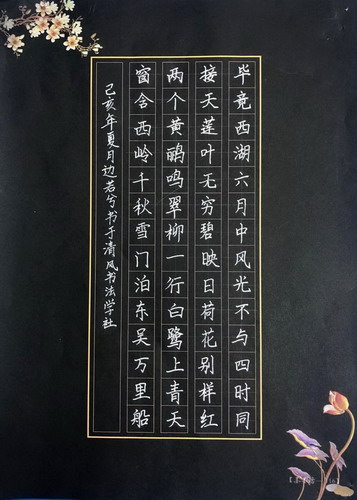 毕竟西湖六月中风光不与四时同
接天莲叶无穷碧映日荷花别样红
两个黄鹂鸣翠柳一行白鹭上青天
窗含西岭千秋雪门泊东吴万里船
己亥年夏月边若兮书于清风书法学社